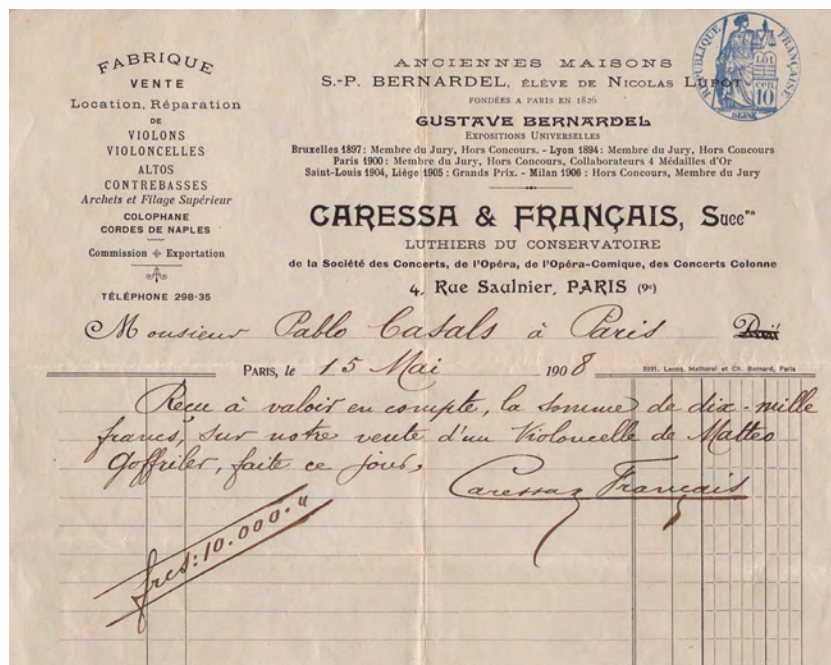 FABRIQUE
VENTE
Location, Réparation
DE
VIOLONS
VIOLONCELLES
ALTOS
CONTREBASSES
Archets et Filage Supérieur
COLOPHANE
CORDES DE NAPLES
Commission Exportation
TÉLÉPHONE 298-35
ANCIENNES MAISONS
S.-P. BERNARDEL, ÉLÈVE DE NICOLAS LUPOT
FONDÉES A PARIS EN 1826
GUSTAVE BERNARDEL
EXPOSITIONS UNIVERSELLES
Bruxelles 1897: Membre du Jury, Hors Concours. - Lyon 1894: Membre du Jury, Hors Concours
Paris 1900: Membre du Jury, Hors Concours, Collaborateurs 4 Médailles d'Or
Saint-Louis 1904, Liège 1905: Grands Prix. - Milan 1906: Hors Concours, Membre du Jury
CARESSA & FRANÇAIS, Succrs
LUTHIERS DU CONSERVATOIRE
de la Société des Concerts, de l'Opéra, de l'Opéra-Comique, des Concerts Colonne
4, Rue Saulnier, PARIS (9e)
RÉPUBLIQUE FRANÇAISE
LOI
10
CEN.
SEINE
Monsieur Pablo Casals à Paris Doit
PARIS, le 15 Mai 1908
2991. Lecoq, Mathorel et Ch. Bernard, Paris
Reçu à valoir en compte, la somme de dix-mille
francs, sur notre vente d'un Violoncelle de Matteo
Goffriler, faite ce jour.
Caressa & Français
frcs: 10.000.